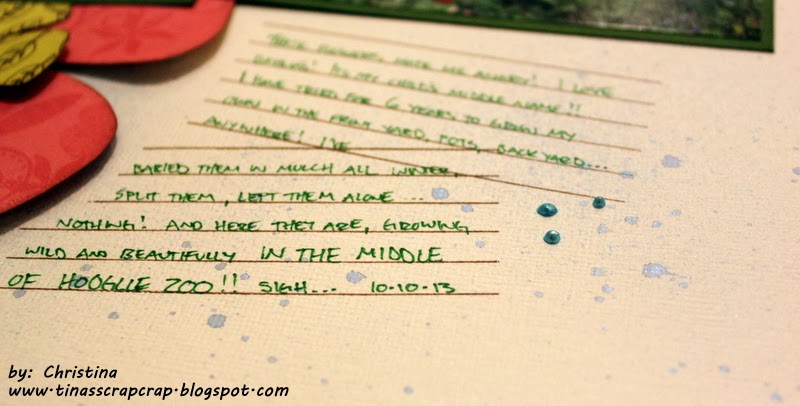 THESE FLOWERS MAKE ME ANGRY! I LOVE
! ITS MY CHILD'S MIDDLE NAME!!
I HAVE TRIED FOR 6 YEARS TO GROW MY
OWN IN THE FRONT YARD, POTS, BACKYARD...
ANYWHERE! I'VE
BARIED THEM IN MULCH ALL WINTER,
SPLIT THEM, LEFT THEM ALONE ...
NOTHING! AND HERE THEY ARE, GROWING
WILD AND BEAUTIFULLY IN THE MIDDLE
OF HOOGLIE ZOO!! SIGH... 10-10-13
by: Christina
www.tinasscrapcrap.blogspot.com